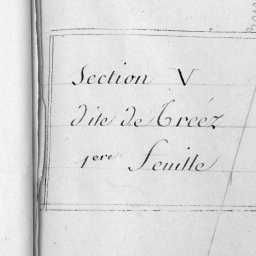 Section V
dite de Créez
1ere Feuille